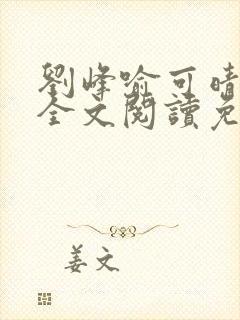 劉峰喻可晴
全文閱讀免
姜文